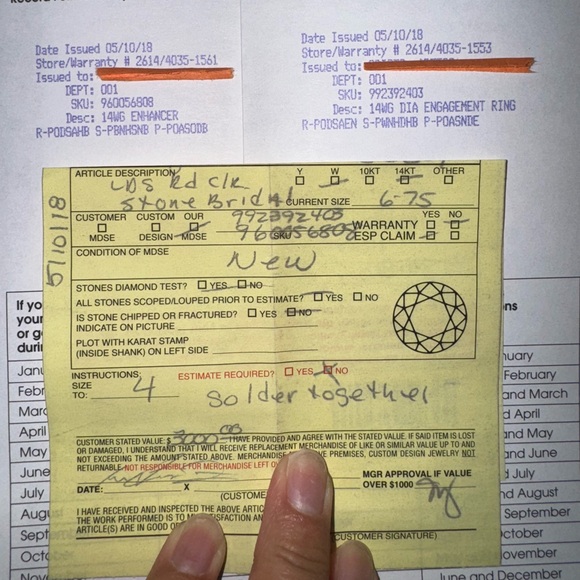 Date Issued 05/10/18
Store/Warranty # 2614/4035-1561
Issued to:
DEPT: 001
SKU: 960056808
Desc: 14WG ENHANCER
R-PODSAHB S-PBNHSNB P-POASODB
Date Issued 05/10/18
Store/Warranty # 2614/4035-1553
Issued to:
DEPT: 001
SKU: 992392403
Desc: 14WG DIA ENGAGEMENT RING
R-PODSAEN S-PWNHDHB P-POASNDE
5/10/18
ARTICLE DESCRIPTION Y W 10KT 14KT OTHER
LDS Rd Clr
Stone Bridal CURRENT SIZE 6-75
CUSTOMER CUSTOM OUR 992392403 YES NO
MDSE DESIGN MDSE 960056808 SKU WARRANTY
ESP CLAIM
CONDITION OF MDSE
New
STONES DIAMOND TEST? YES NO
ALL STONES SCOPED/LOUPED PRIOR TO ESTIMATE? YES NO
IS STONE CHIPPED OR FRACTURED? YES NO
INDICATE ON PICTURE
PLOT WITH KARAT STAMP
(INSIDE SHANK) ON LEFT SIDE
INSTRUCTIONS: ESTIMATE REQUIRED? YES NO
SIZE
TO: 4
Solder together
CUSTOMER STATED VALUE: $ 3000 I HAVE PROVIDED AND AGREE WITH THE STATED VALUE. IF SAID ITEM IS LOST
OR DAMAGED, I UNDERSTAND THAT I WILL RECEIVE REPLACEMENT MERCHANDISE OF LIKE OR SIMILAR VALUE UP TO AND
NOT EXCEEDING THE AMOUNT STATED ABOVE. MERCHANDISE PREMISES, CUSTOM DESIGN JEWELRY NOT
RETURNABLE. NOT RESPONSIBLE FOR MERCHANDISE LEFT
MGR APPROVAL IF VALUE
OVER $1000
DATE: X
(CUSTOME
I HAVE RECEIVED AND INSPECTED THE ABOVE ARTIC
THE WORK PERFORMED IS TO
ARTICLE(S) ARE IN GOOD
(CUSTOMER SIGNATURE)
If you
your
or g
durin
Janu
Febr
Marc
April
May
June
July
Augu
Septe
Octo
Nov
nuary
February
and March
d April
and May
and June
d July
nd August
September
October
ovember
June and December